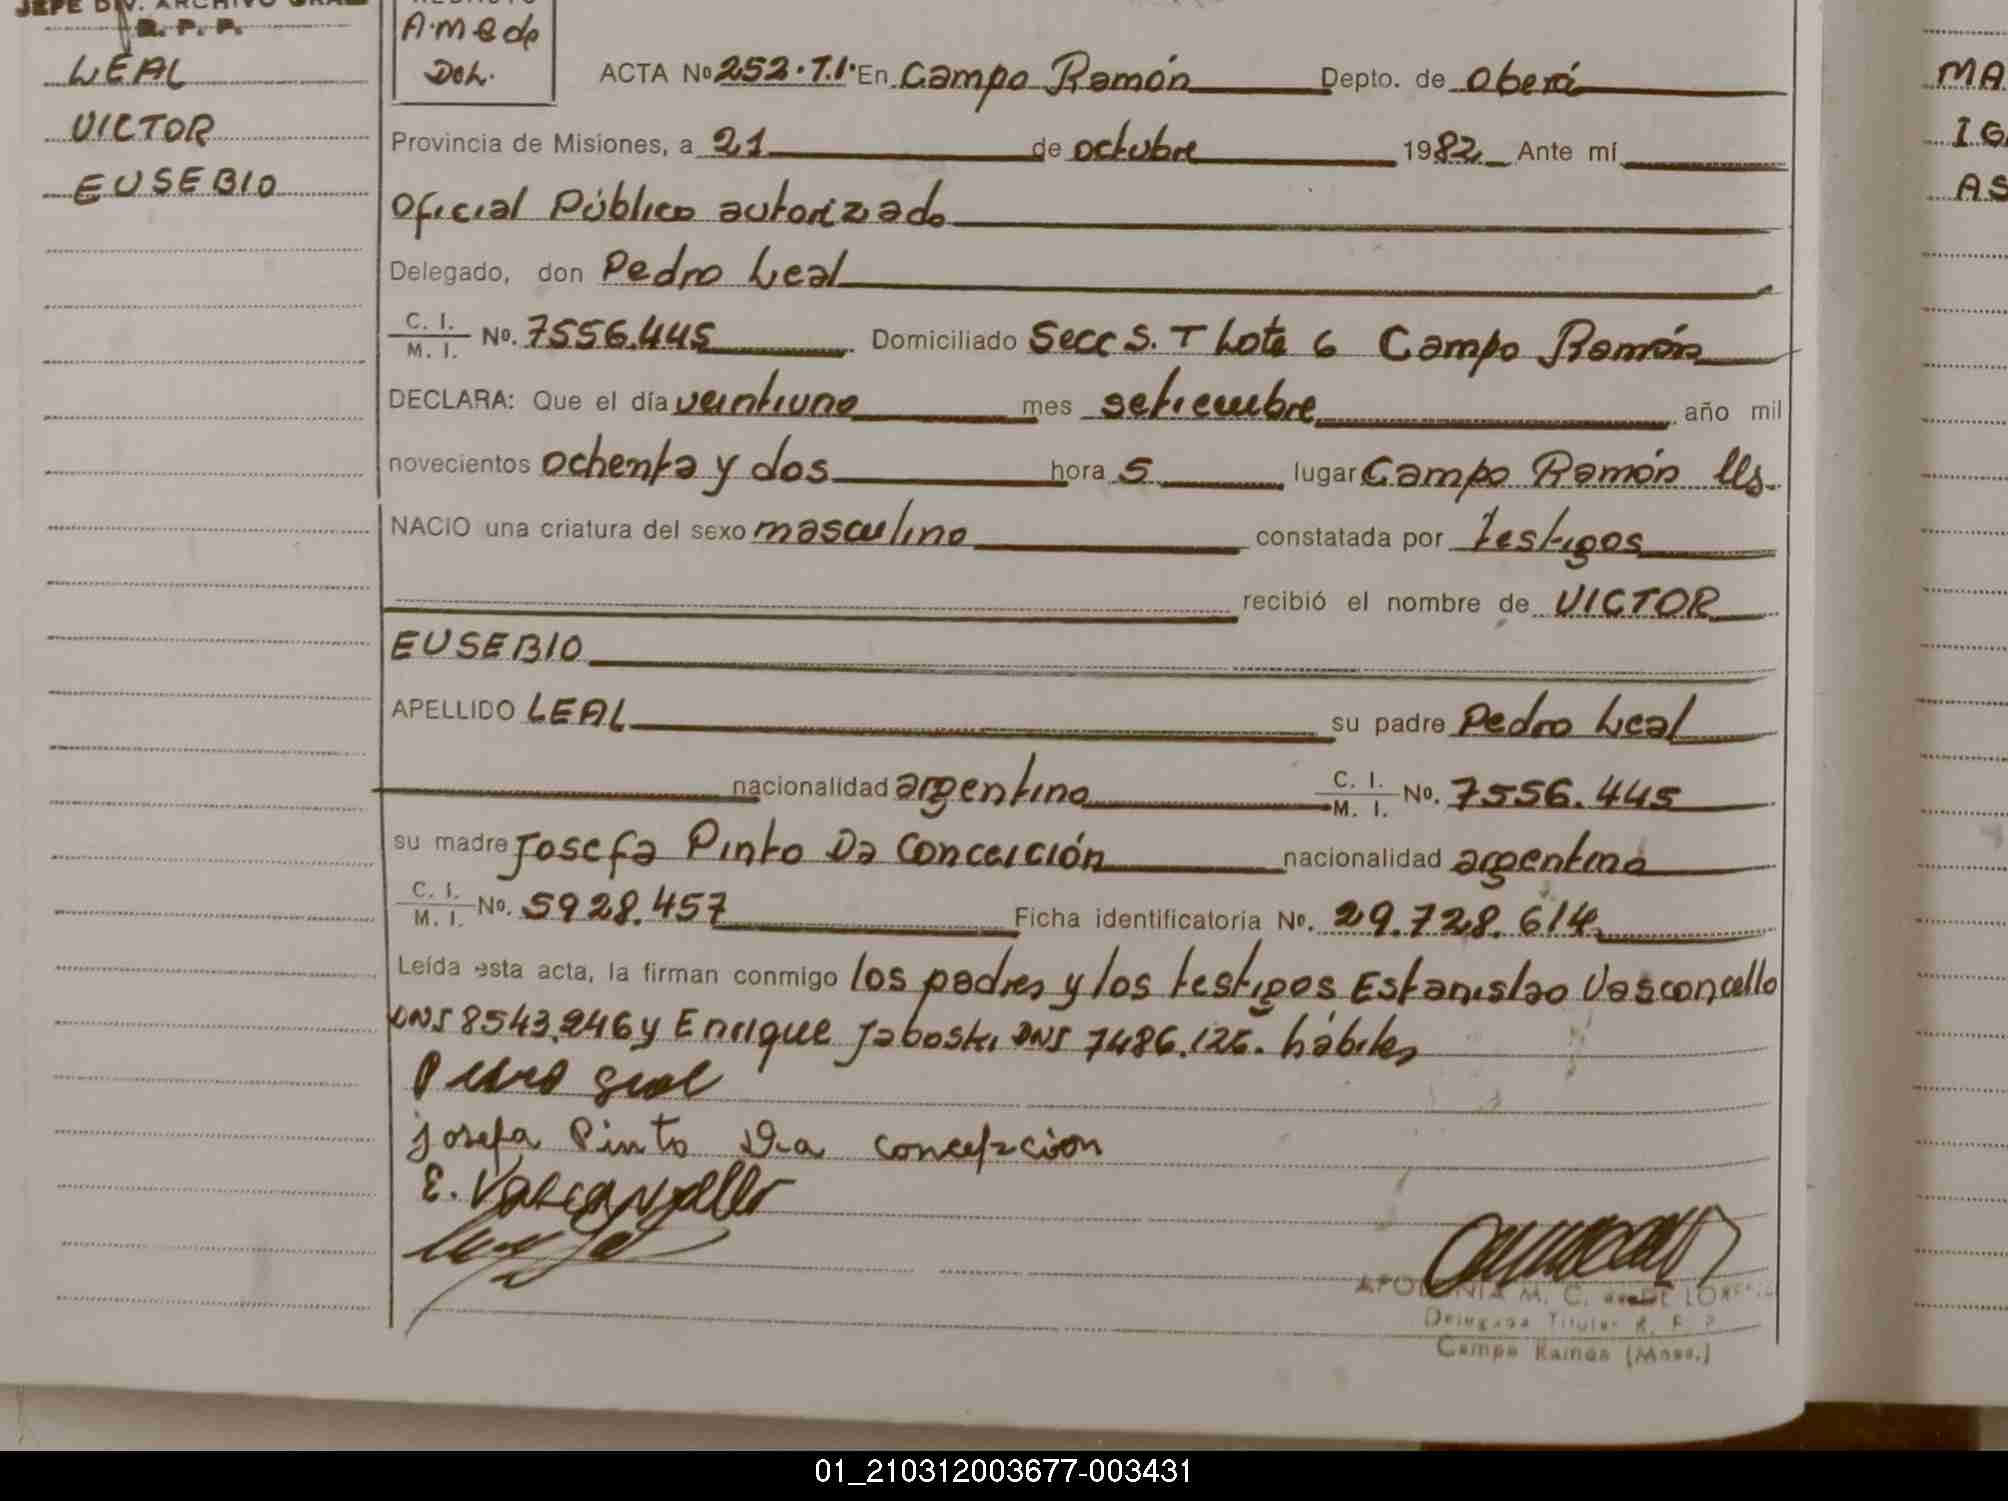 JEFE DIV. ARCHIVO GRAL
R. P. P.
LEAL
VICTOR
EUSEBIO
A.M.C de
DeL.
ACTA Nº 252.T.I. En Campo Ramón Depto. de Oberá
Provincia de Misiones, a 21 de octubre 1982 Ante mí
Oficial Público autorizado
Delegado, don Pedro Leal
C. I.
M. I. Nº. 7556.445 Domiciliado Secc S. T Lote 6 Campo Ramón
DECLARA: Que el día veintiuno mes setiembre año mil
novecientos ochenta y dos hora 5 lugar Campo Ramón Ms.
NACIO una criatura del sexo masculino constatada por testigos
recibió el nombre de VICTOR
EUSEBIO
APELLIDO LEAL su padre Pedro Leal
nacionalidad argentino C. I.
M. I. Nº. 7556.445
su madre Josefa Pinto Da Conceición nacionalidad argentina
C. I.
M. I. Nº. 5928.457 Ficha identificatoria Nº. 29.728.614
Leída esta acta, la firman conmigo los padres y los testigos Estanislao Vasconcello
DNI 8543.246 y Enrique Jaboski DNI 7486.126. hábiles
Pedro Leal
Josefa Pinto Da concepcion
E. Vasconcello
APOLONIA M. C. DE
Delegada Titular R. P. P.
Campo Ramón (Mnes.)
MA
IG
AS
01_210312003677-003431